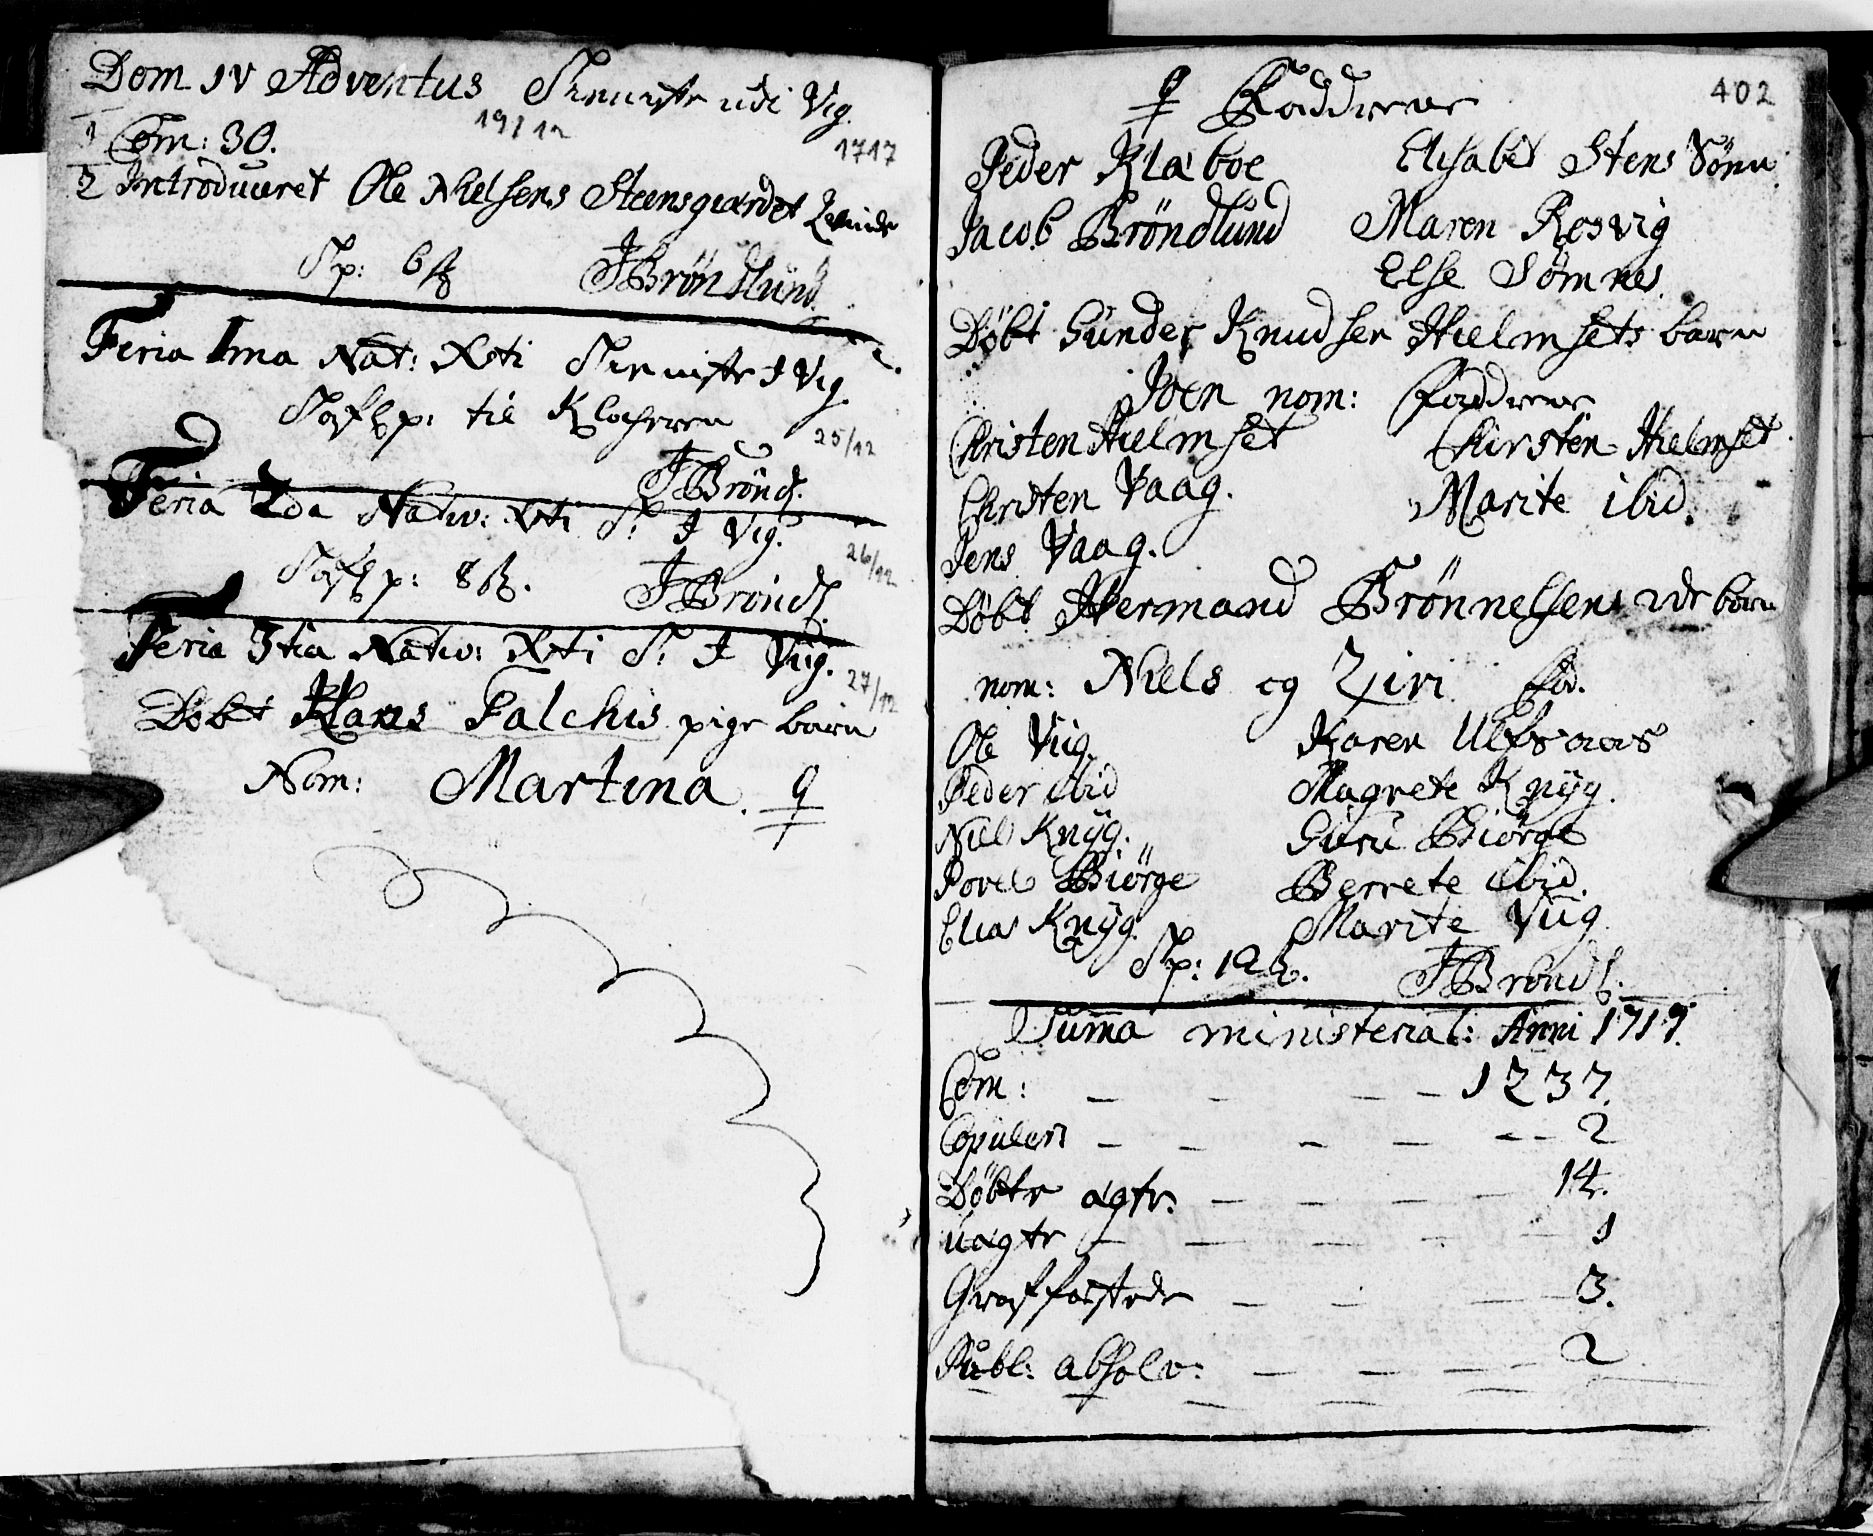 Dom IV Adventus Tieniste udi Vig.
19/12 1717
1 Com: 30.
2 Introduceret Ole Nielsens Steensgaardet Qvinde
Sp: 6 ß JBröndlund
Feria Ima Nat: Xsti Tieniste I Vig.
Tafl p: til Klocheren
25/12
JBrönd.
Feria 2da Nativ: Xsti T: I Vig.
Tafl p: 8 ß. 26/12
JBröndl.
Feria 3tia Nativ: Xsti T: I Viig.
27/12
Döbt Hans Falchis pige barn
Nom: Martina.
402
Faddrene
Peder Klaboe Elisabet Stens Sönn
Jacob Bröndlund Maren Rosvig
Else Sömnes
Döbt Gunder Knudsen Hielmsets barn
Joen nom: Faddrene
Christen Hielmset Chirsten Hielmset
Christen Vaag. Marite ibid.
Jens Vaag.
Döbt Hermand Brönnelsens 2de börn
nom: Niels og Ziri Fad.
Ole Viig. Karen Ulfsaas
Peder ibid Magrete Knyg.
Niel Knyg. Guru Biörge
Povel Biörge Berrete ibid.
Elias Knyg. Marite Viig
Sp: 12 ß. JBröndl.
Summa ministerial: Anni 1717.
Com: — — — — 1237.
Copuleri — — — — — 2
Döbte ægte. — — — — 14.
uægte — — — — — 1
Graffæstede — — — — 3.
Publ: absolv: — — — — 2